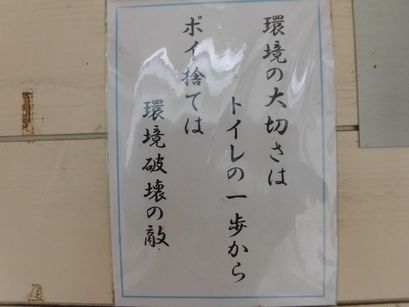 環境の大切さは
トイレの一歩から
ポイ捨ては
環境破壊の敵